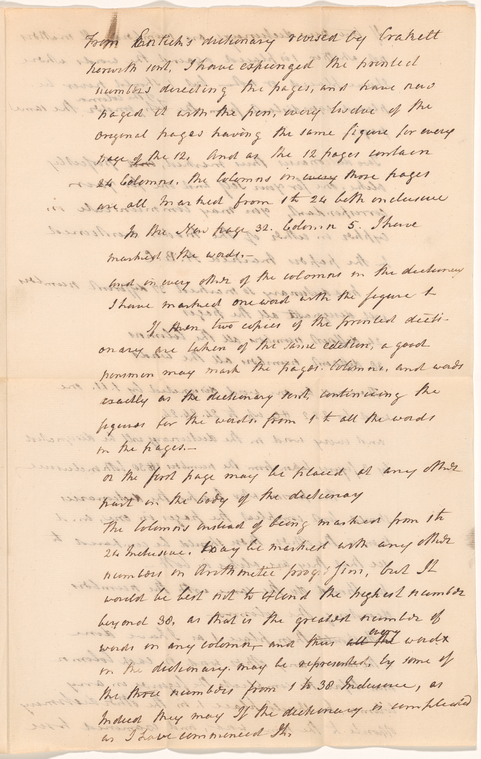 From Entick's dictionary revised by Crakelt
herewith sent, I have expunged the printed
numbers directing the pages, and have new
paged it with the pen, every twelve of the
original pages having the same figure for every
page of the 12. And as the 12 pages contain
24 Columns. the Columns on every those pages
are all marked from 1 to 24 both inclusive
In the New page 32. Column 5. I have
marked the words.—
and on every other of the columns in the dictionary
I have marked one word with the figure 1
If then two copies of the printed dicti-
onary are taken of the same edition, a good
penman may mark the pages. Columns, and words
exactly as the dictionary sent, continuing the
figures for the words from 1 to all the words
in the pages.—
or the first page may be placed at any other
part in the body of the dictionary
the Columns instead of being marked from 1 to
24 Inclusive. may be marked with any other
numbers in Arithmetic progression, but It
would be best not to extend the highest number
beyond 38, as that is the greatest number of
words on any column, and thus every word
in the dictionary. may be represented, by some of
the those numbers from 1 to 38 Inclusive, as
Indeed they may If the dictionary is compleated
as I have commenced It.